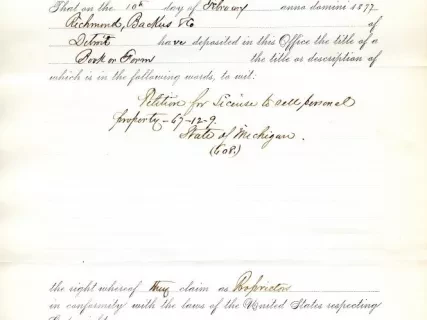 That on the 10th day of February anno domini 1877
Richmond, Backus & Co of
Detroit have deposited in this Office the title of a
Book or Form the title or description of
which is in the following words, to wit:
Petition for License to sell personal
property - 67-12-9.
State of Michigan.
the right whereof they claim as Proprietors
in conformity with the laws of the United States respecting